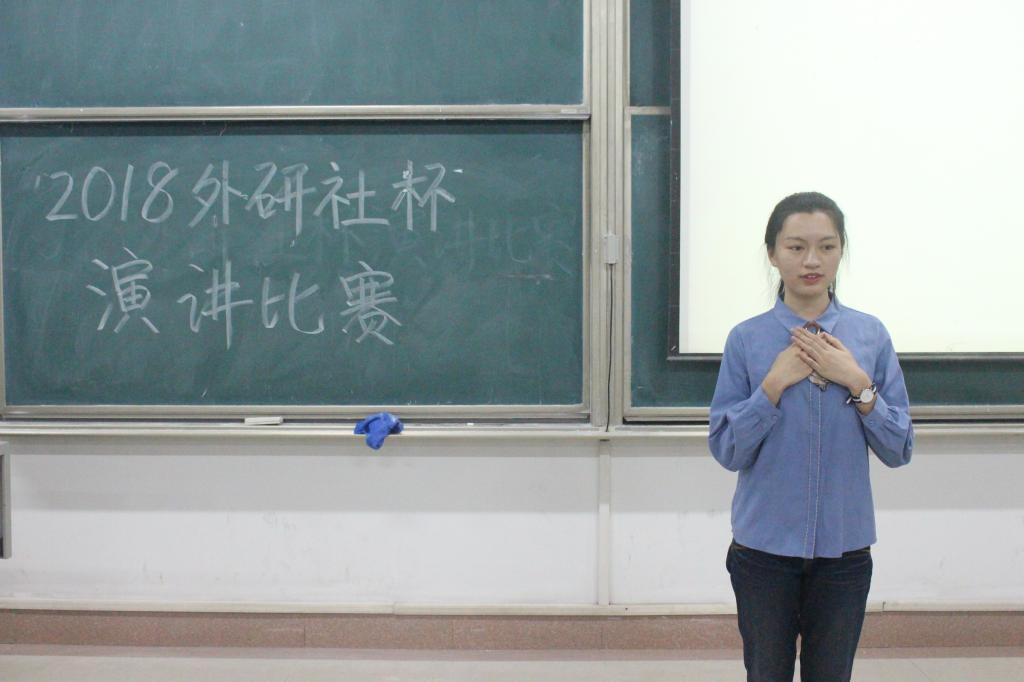 2018外研社杯
演讲比赛